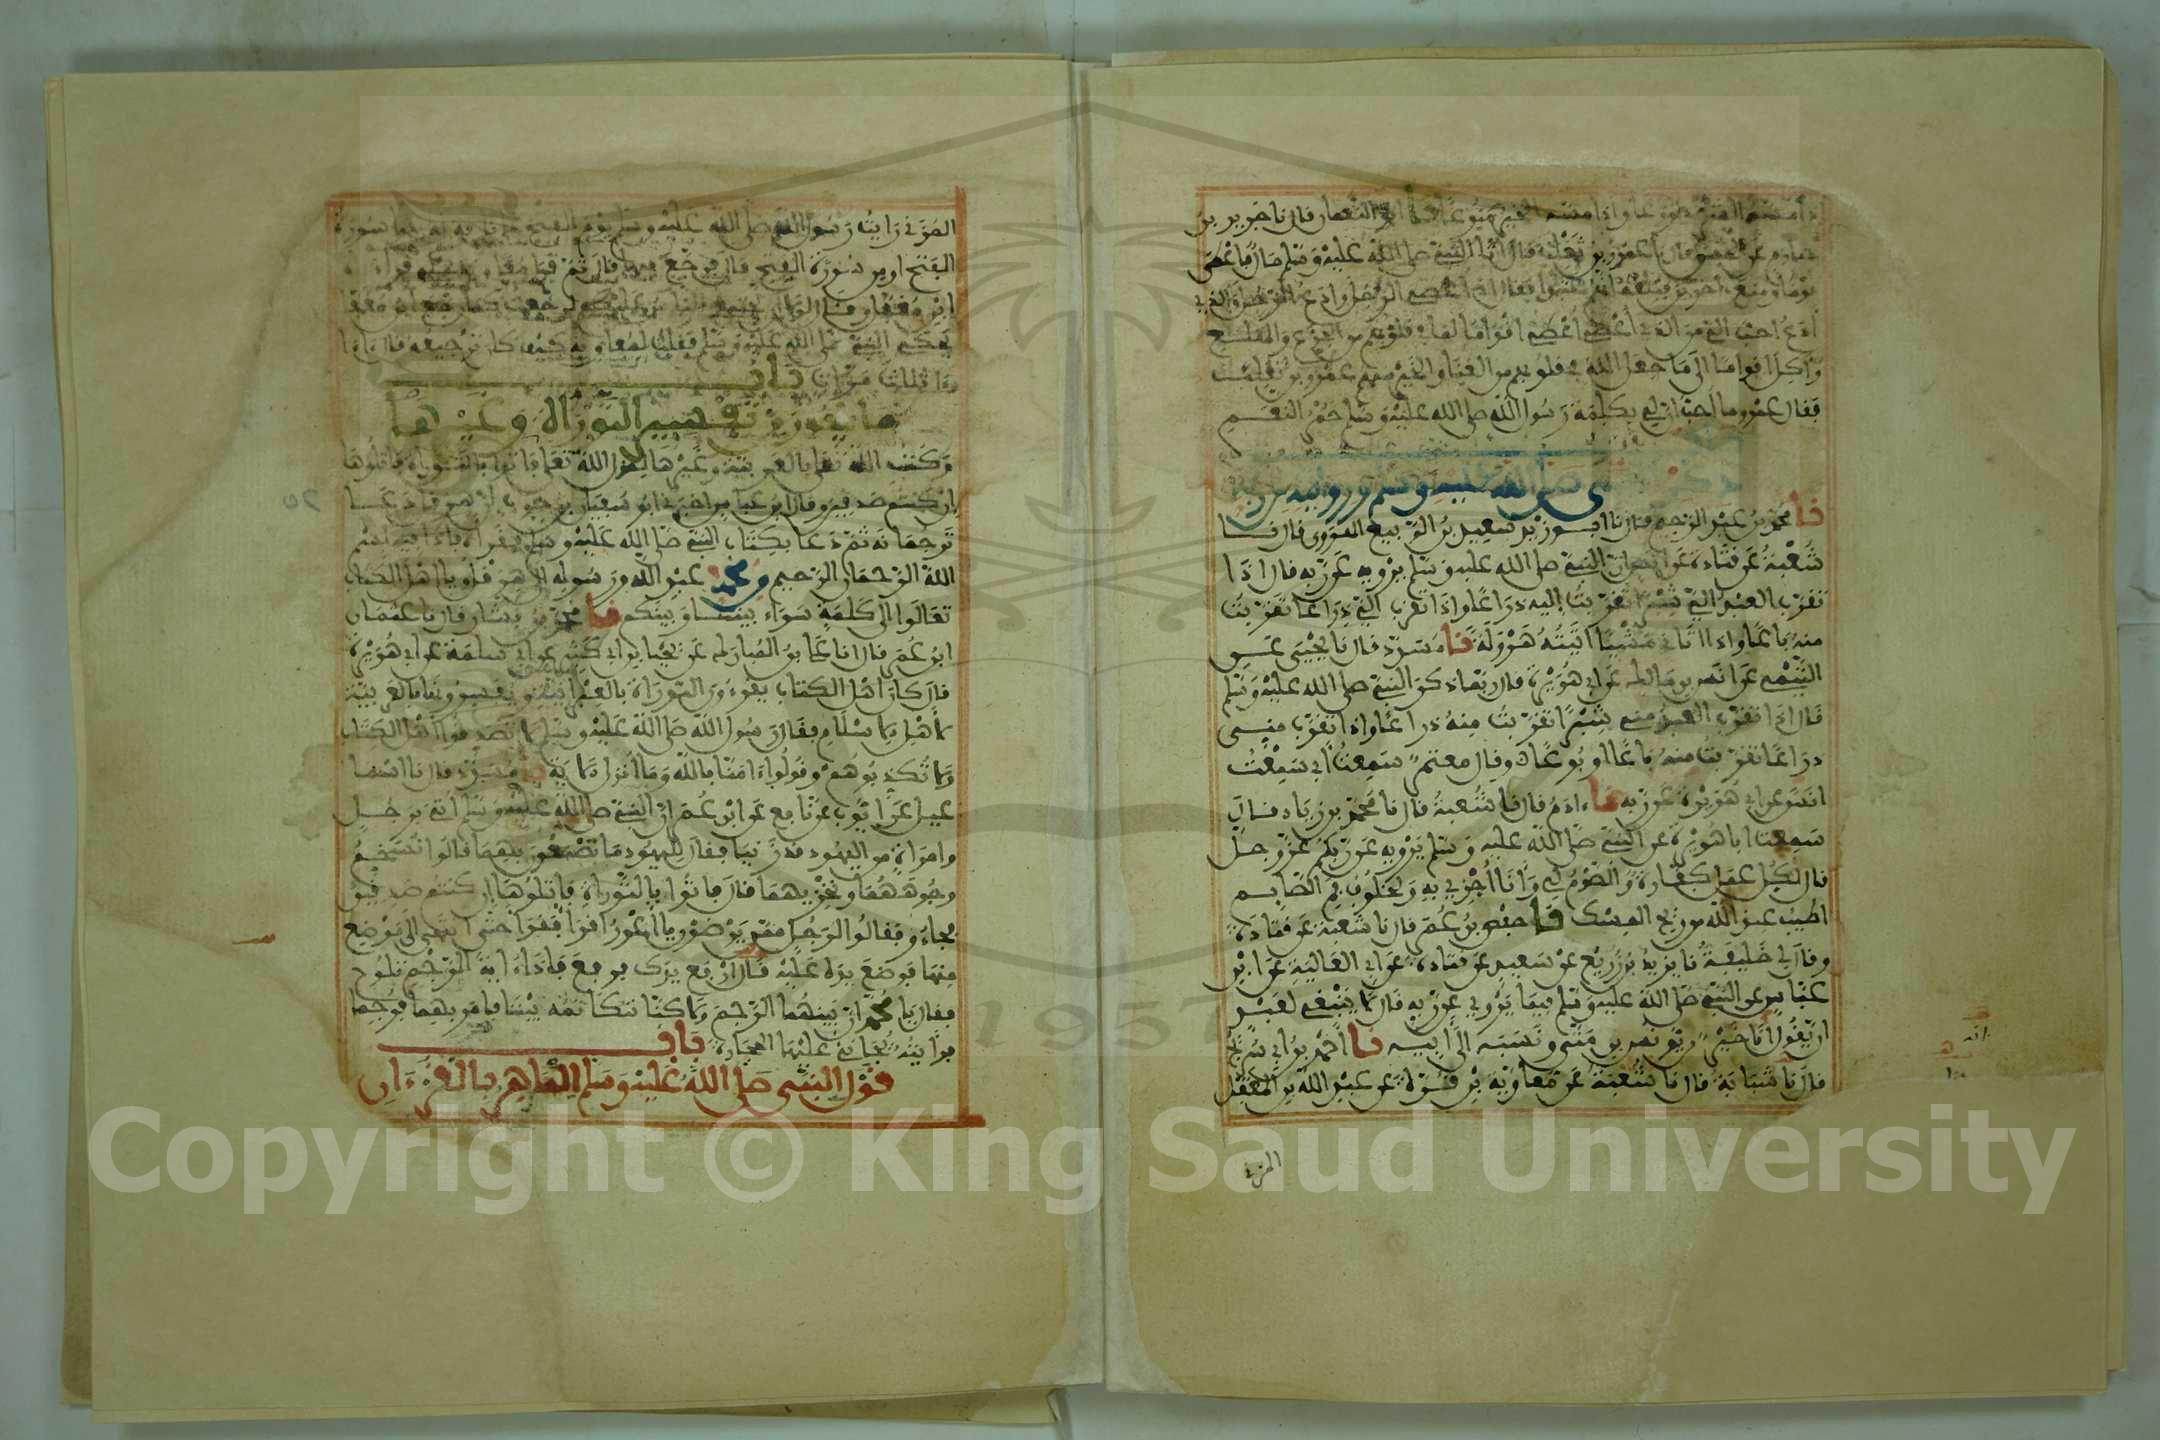 اذا مسه الشر جزوعا واذا مسه الخير منوعا نا ابو النعمان قال نا جرير بن
حازم عن الحسن قال نا عمرو بن تغلب قال اتى النبي صلى الله عليه وسلم مال فاعطى
قوما ومنع اخرين فبلغه انهم عتبوا فقال اني اعطي الرجل وادع الرجل والذي
ادع احب الي من الذي اعطي اعطي اقواما لما في قلوبهم من الجزع والهلع
واكل اقواما الى ما جعل الله في قلوبهم من الغنا والخير منهم عمرو بن تغلب
فقال عمرو ما احب ان لي بكلمة رسول الله صلى الله عليه وسلم حمر النعم
ذكر النبي صلى الله عليه وسلم وروايته عن ربه
نا محمد بن عبد الرحيم قال نا ابو زيد سعيد بن الربيع الهروي قال نا
شعبة عن قتادة عن انس عن النبي صلى الله عليه وسلم يرويه عن ربه قال اذا
تقرب العبد الي شبرا تقربت اليه ذراعا واذا تقرب الي ذراعا تقربت
منه باعا واذا اتاني مشيا اتيته هرولة نا مسدد قال نا يحيى عن
التيمي عن انس بن مالك عن ابي هريرة قال ربما ذكر النبي صلى الله عليه وسلم
قال اذا تقرب العبد مني شبرا تقربت منه ذراعا واذا تقرب مني
ذراعا تقربت منه باعا او بوعا وقال معتمر سمعت ابي سمعت
انسا عن ابي هريرة عن ربه نا ءادم قال نا شعبة قال نا محمد بن زياد قال
سمعت ابا هريرة عن النبي صلى الله عليه وسلم يرويه عن ربكم عز وجل
قال لكل عمل كفارة والصوم لي وانا اجزي به ولخلوف فم الصايم
اطيب عند الله من ريح المسك نا حفص بن عمر قال نا شعبة عن قتادة
وقال لي خليفة نا يزيد بن زريع عن سعيد عن قتادة عن ابي العالية عن ابن
عباس عن النبي صلى الله عليه وسلم فيما يروي عن ربه قال لا ينبغي لعبد
ان يقول انا خير من يونس بن متى ونسبه الى ابيه نا احمد بن ابي سريج
قال نا شبابة قال نا شعبة عن معاوية بن قرة عن عبد الله بن المغفل
المزني
المزني رايت رسول الله صلى الله عليه وسلم يوم الفتح على ناقة له يقرا سورة
الفتح او من سورة الفتح قال فرجع فيها قال ثم قرا معاوية يحكي قراءة
ابن مغفل وقال لولا ان يجتمع الناس عليكم لرجعت كما رجع ابن مغفل
يحكي النبي صلى الله عليه وسلم فقلت لمعاوية كيف كان ترجيعه قال ءاءا
ءا ثلاث مرات باب
ما يجوز من تفسير التوراة وغيرها
وكتب الله تعلى بالعربية وغيرها لقول الله تعلى فاتوا بالتوراة فاتلوها
ان كنتم صدقين وقال ابن عباس اخبرني ابو سفيان بن حرب ان هرقل دعا
ترجمانه ثم دعا بكتاب النبي صلى الله عليه وسلم فقراه فاذا فيه بسم
الله الرحمان الرحيم من محمد عبد الله ورسوله الى هرقل ويا اهل الكتاب
تعالوا الى كلمة سواء بيننا وبينكم نا محمد بن بشار قال نا عثمان
ابن عمر قال انا علي بن المبارك عن يحيا بن ابي كثير عن ابي سلمة عن ابي هريرة
قال كان اهل الكتاب يقرءون التوراة بالعبرانية ويفسرونها بالعربية
لاهل الاسلام فقال رسول الله صلى الله عليه وسلم لا تصدقوا اهل الكتاب
ولا تكذبوهم وقولوا ءامنا بالله وما انزل الاية نا مسدد قال نا اسما
عيل عن ايوب عن نافع عن ابن عمر ان النبي صلى الله عليه وسلم اتي برجل
وامراة من اليهود قد زنيا فقال لليهود ما تصنعون بهما قالوا نسخم
وجوههما ونخزيهما قال فاتوا بالتوراة فاتلوها ان كنتم صدقين
فجاءو فقالوا لرجل ممن يرضون يا اعور اقرا فقرا حتى انتهى الى موضع
منها فوضع يده عليه قال ارفع يدك فرفع فاذا ءاية الرجم تلوح
فقال يا محمد ان بينهما الرجم ولاكنا نتكاتمه بيننا فامر بهما فرجما
فرايته يجانئ عليها الحجارة باب
قول النبي صلى الله عليه وسلم الماهر بالقرءان
Copyright © King Saud University
1957